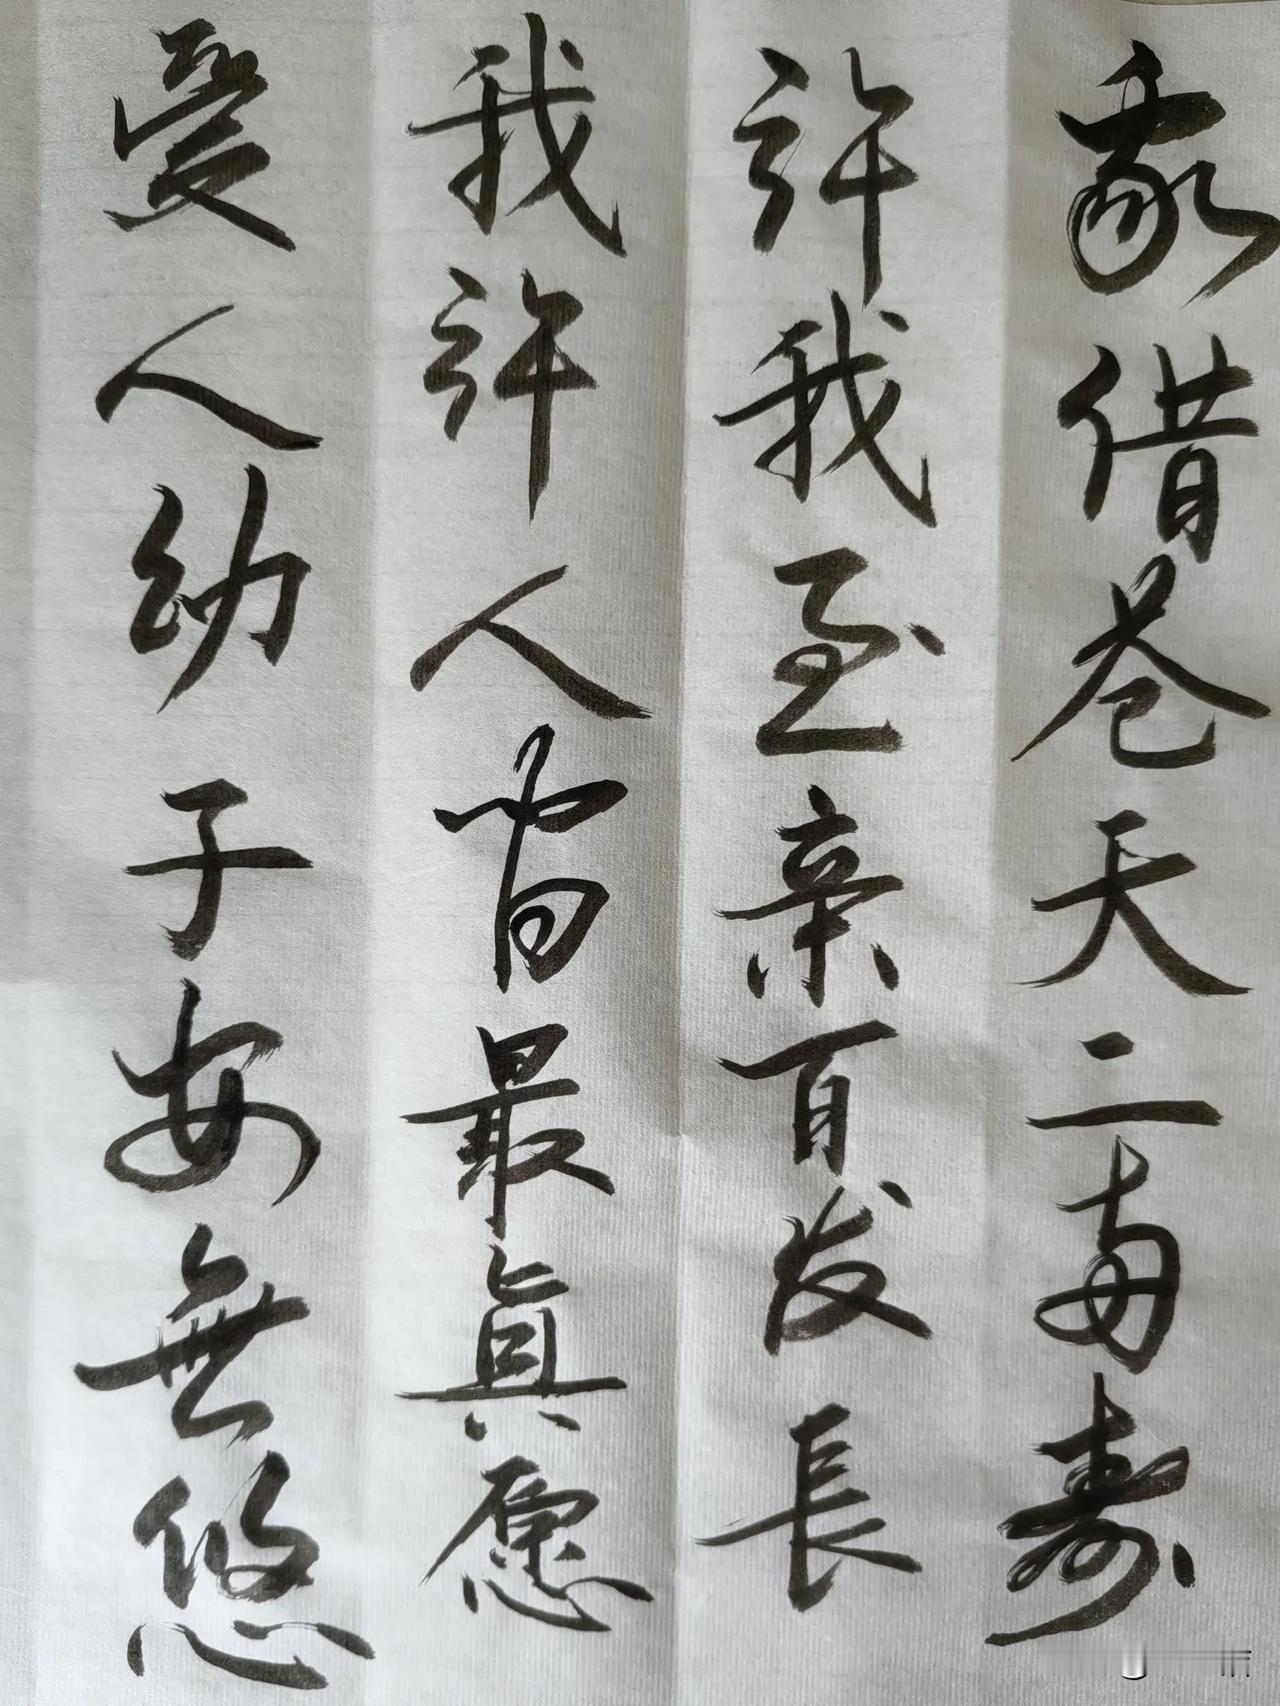 借苍天二两寿
許我至亲百发長
我許人间最真愿
爱人幼子安無悠